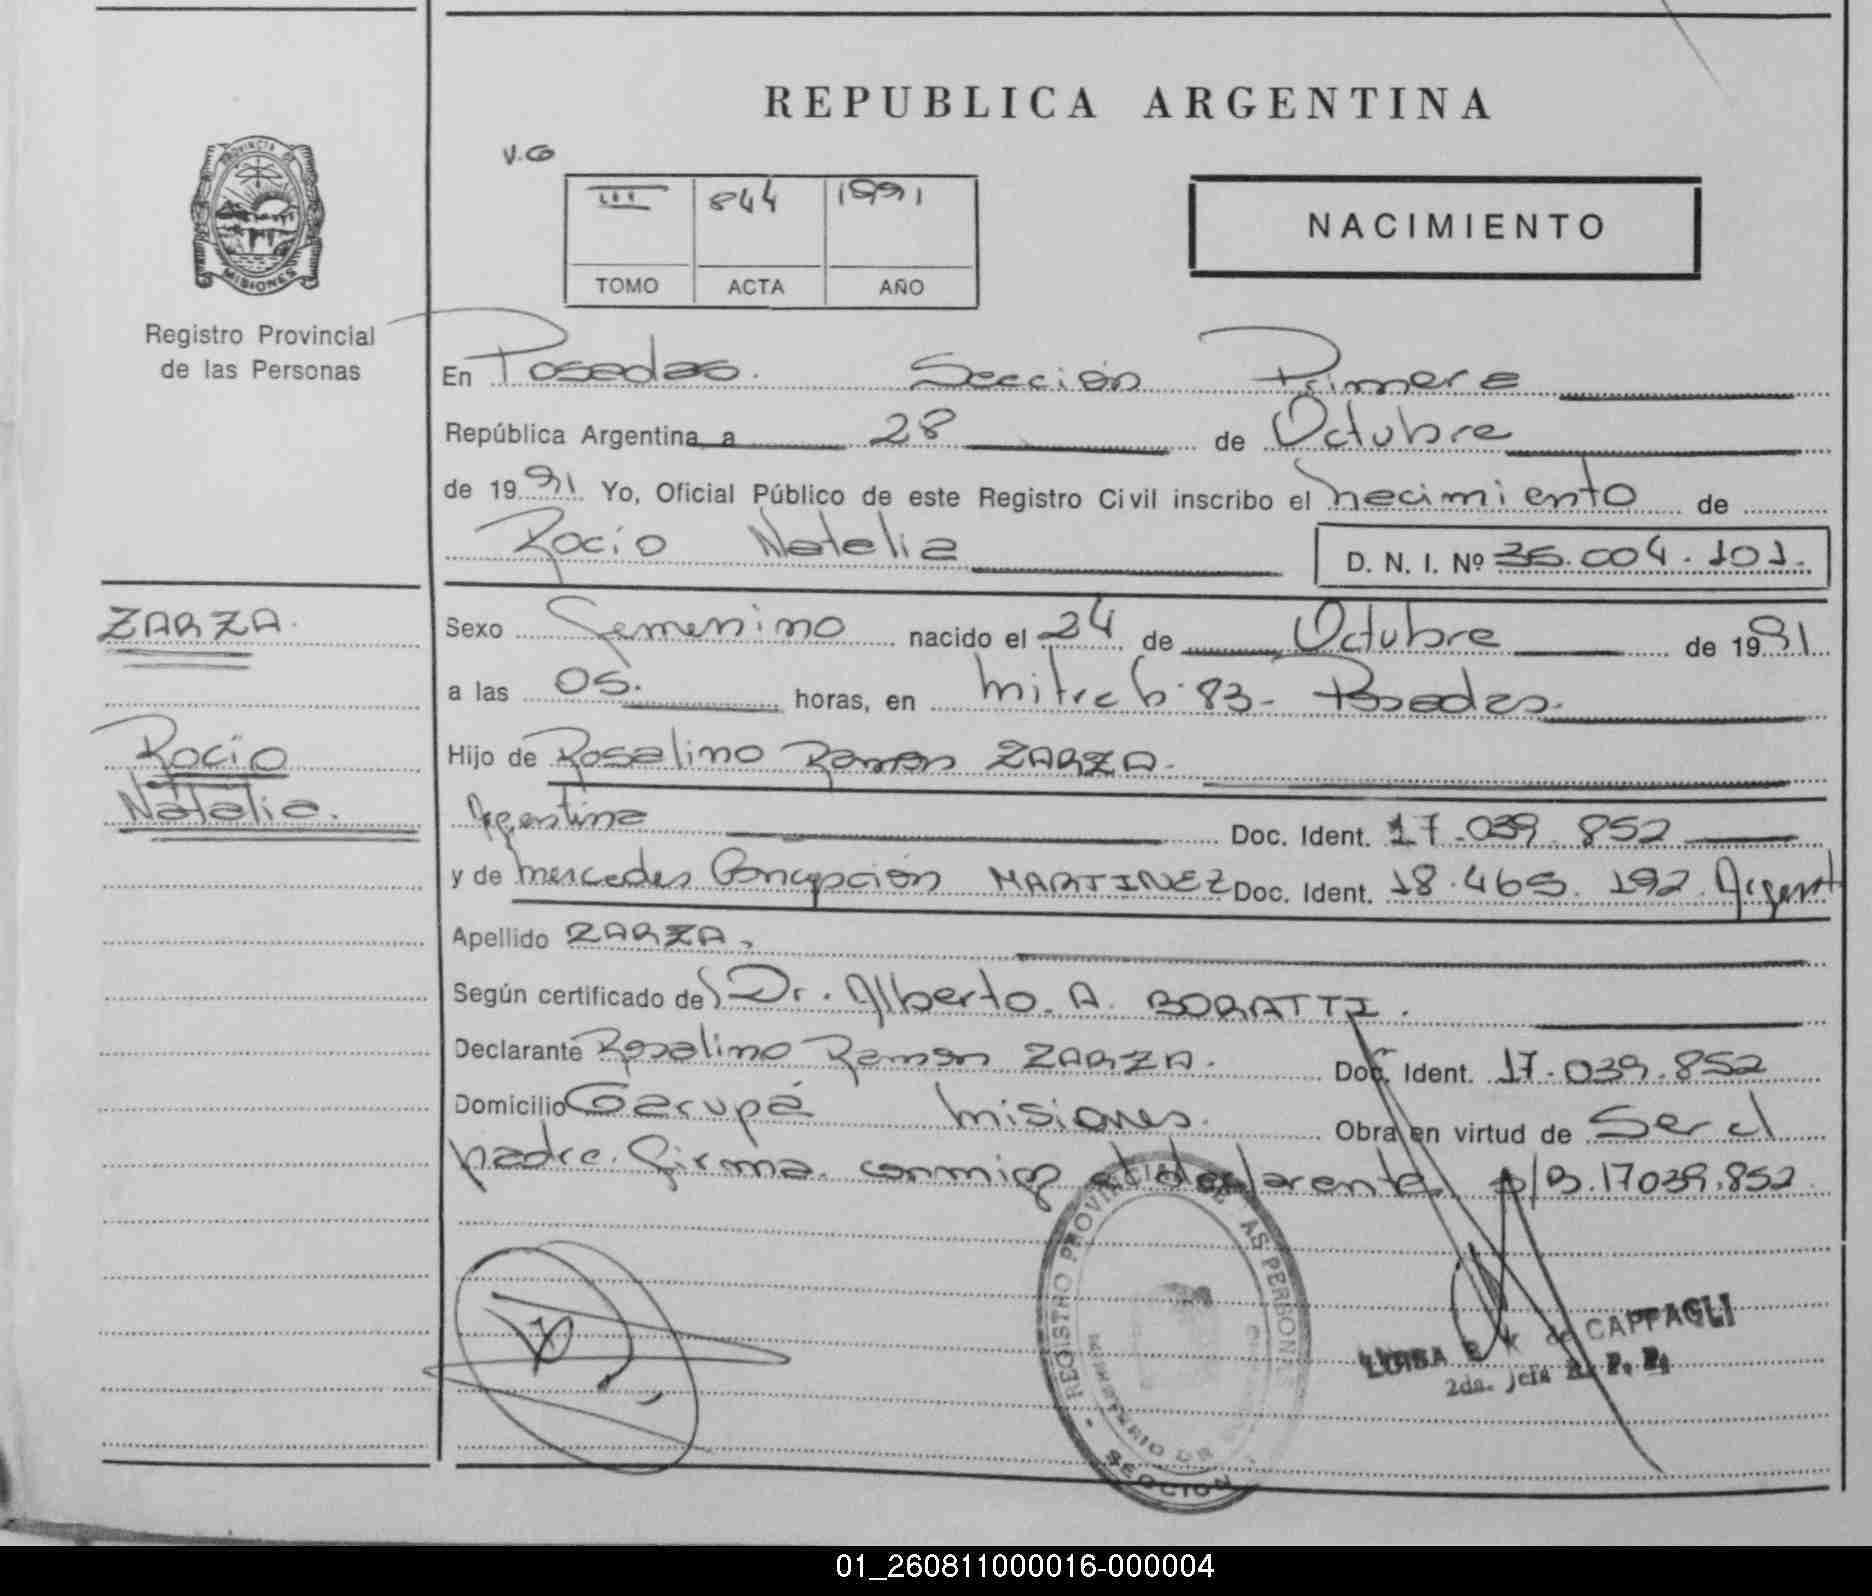 REPUBLICA ARGENTINA
V.G
NACIMIENTO
III 844 1991
TOMO ACTA AÑO
PROVINCIA DE MISIONES
Registro Provincial
de las Personas
En Posadas. Sección Primera
República Argentina a 28 de Octubre
de 1991 Yo, Oficial Público de este Registro Civil inscribo el nacimiento de
Rocio Natalia D. N. I. Nº 36.004.101.
ZARZA.
Rocio
Natalia.
Sexo Femenino nacido el 24 de Octubre de 1991
a las 05. horas, en Mitre 83- Posadas.
Hijo de Rosalino Ramon ZARZA.
Argentina Doc. Ident. 17.039.852
y de Mercedes Concepción MARTINEZ Doc. Ident. 18.465.192. Argent
Apellido ZARZA.
Según certificado del Dr. Alberto. A. BORATTI.
Declarante Rosalino Ramon ZARZA. Doc. Ident. 17.039.852
Domicilio Garupá Misiones. Obra en virtud de Ser el
padre. Firma conmigo el declarante s/B. 17039.852
REGISTRO PROVINCIAL DE AS PERSONAS
SECCION
de CAPPAGLI
2da. Jefa R. P. P.
01_260811000016-000004